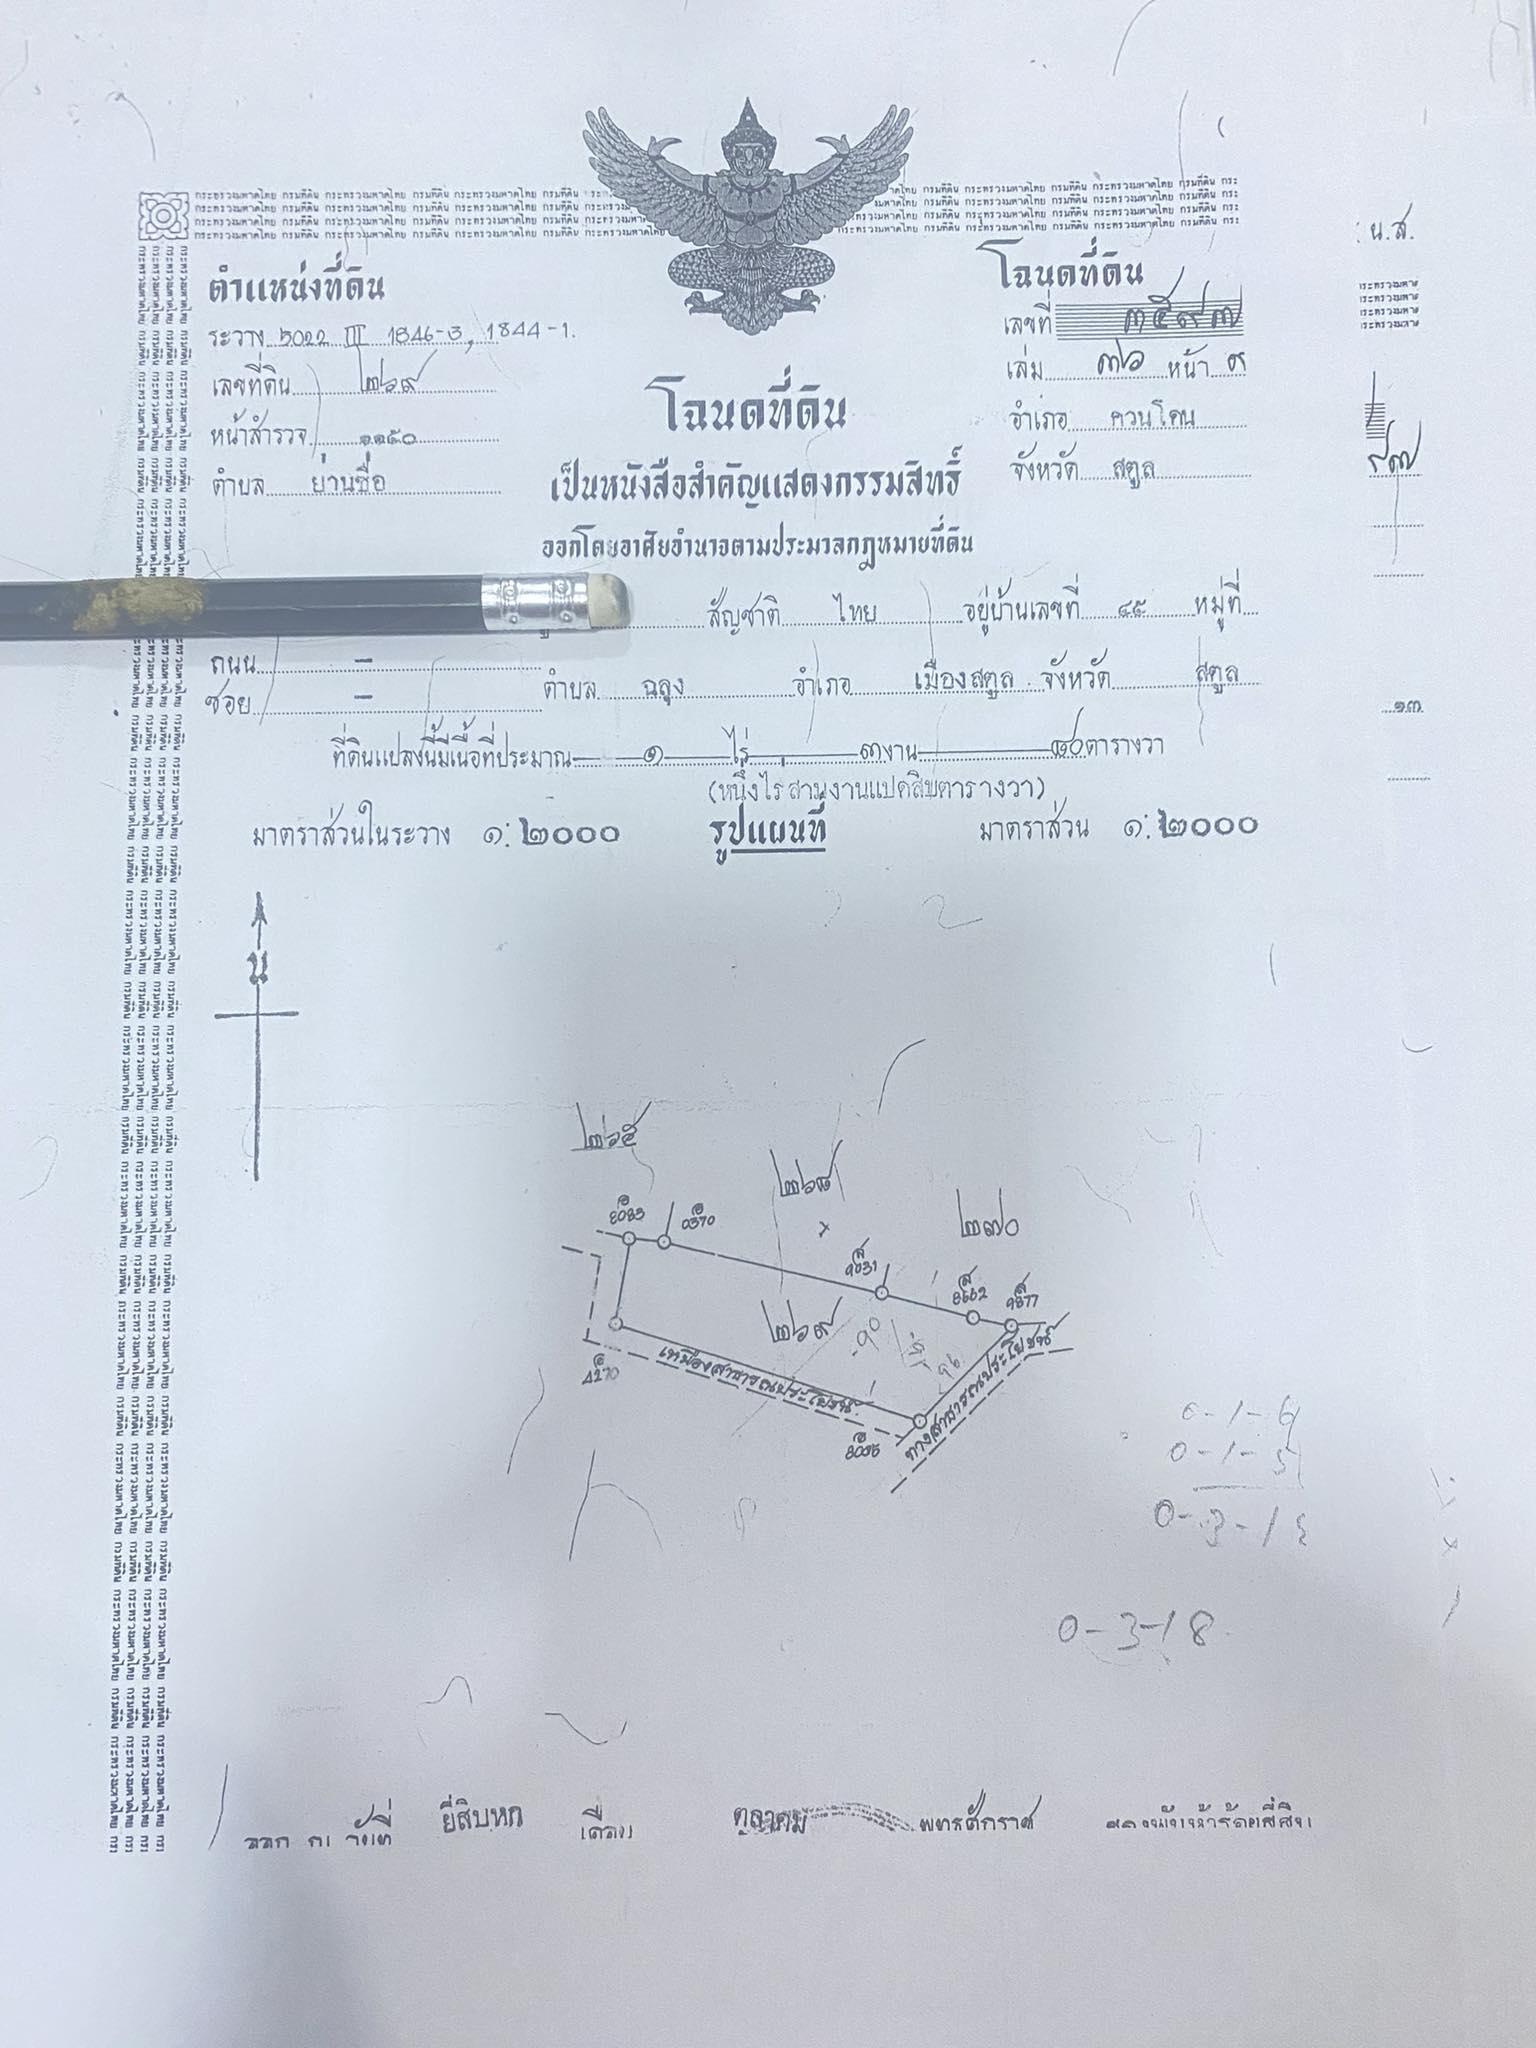 กระทรวงมหาดไทย กรมที่ดิน กระทรวงมหาดไทย กรมที่ดิน กระทรวงมหาดไทย กรมที่ดิน
น.ส.
ตำแหน่งที่ดิน
โฉนดที่ดิน
ระวาง 5022 III 1846-3, 1844-1.
เลขที่ ๓๕๙๗
เลขที่ดิน ๒๖๙
เล่ม ๓๖ หน้า ๙
โฉนดที่ดิน
หน้าสำรวจ ๑๑๕๐
อำเภอ ควนโดน
ตำบล ย่านซื่อ
เป็นหนังสือสำคัญแสดงกรรมสิทธิ์
จังหวัด สตูล
ออกโดยอาศัยอำนาจตามประมวลกฎหมายที่ดิน
สัญชาติ ไทย อยู่บ้านเลขที่ ๔๙ หมู่ที่
ถนน –
ซอย –
ตำบล ฉลุง อำเภอ เมืองสตูล จังหวัด สตูล
๑๓
ที่ดินแปลงนี้มีเนื้อที่ประมาณ ๑ ไร่ ๓ งาน ๘๐ ตารางวา
(หนึ่งไร่สามงานแปดสิบตารางวา)
มาตราส่วนในระวาง ๑:๒๐๐๐ รูปแผนที่ มาตราส่วน ๑:๒๐๐๐
น
๒๖๕
๒๖๘
๒๗๐
0370
9031
8662
9877
๒๖๙
เหมืองสาธารณประโยชน์
ทางสาธารณประโยชน์
4270
0-3-18
ออก ณ วันที่ ยี่สิบหก เดือน ตุลาคม พุทธศักราช